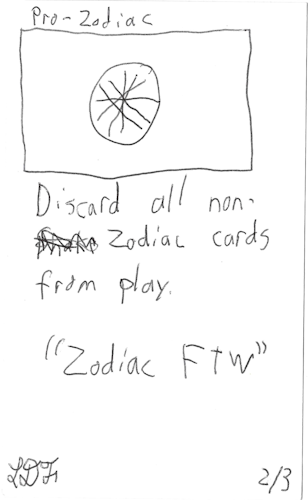 Pro-Zodiac
Discard all non-
Zodiac cards
from play.
"Zodiac FTW"
2/3